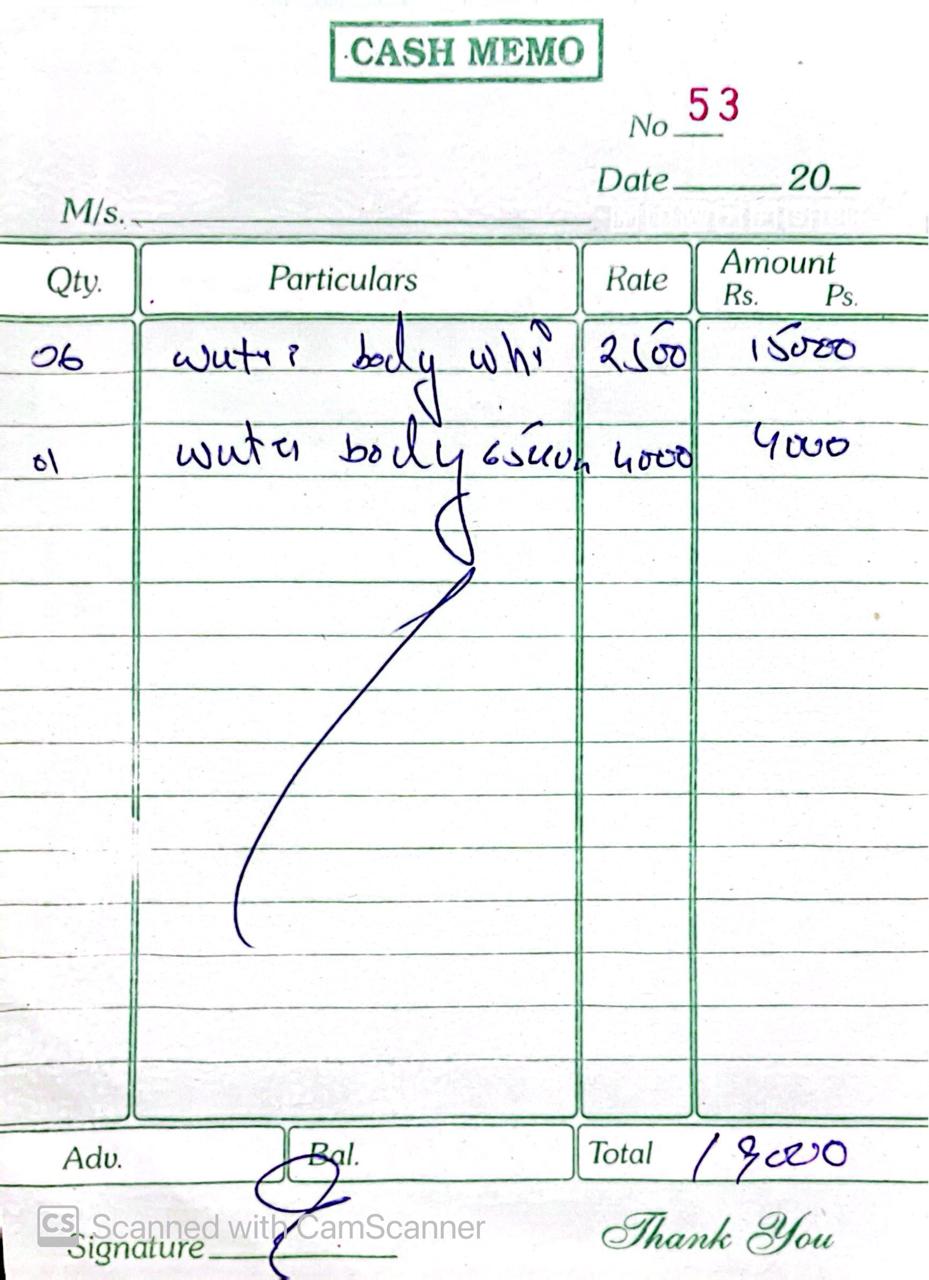 CASH MEMO
No 53
Date 20
M/s.
Qty. Particulars Rate Amount
Rs. Ps.
06 body 2500 15000
01 body 4000 4000
Adv. Bal. Total 19000
CS Scanned with CamScanner
Signature Thank You